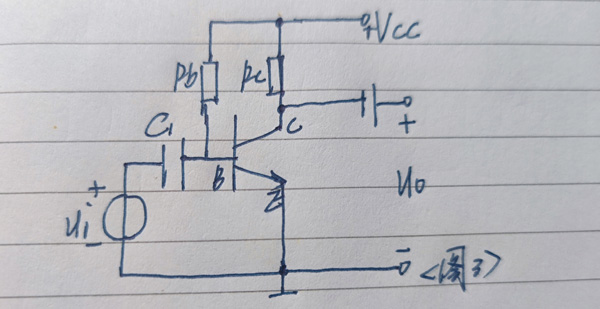 +Vcc
Rb
Rc
C₁
C
B
E
+
ui
-
+
uo
-
<图3>